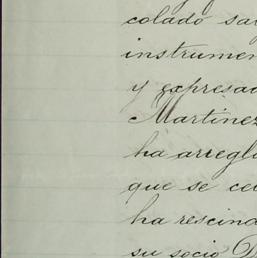 colado sa
instrumen
y expresad
Martinez
ha arregl
que se ce
ha rescind
su socio D